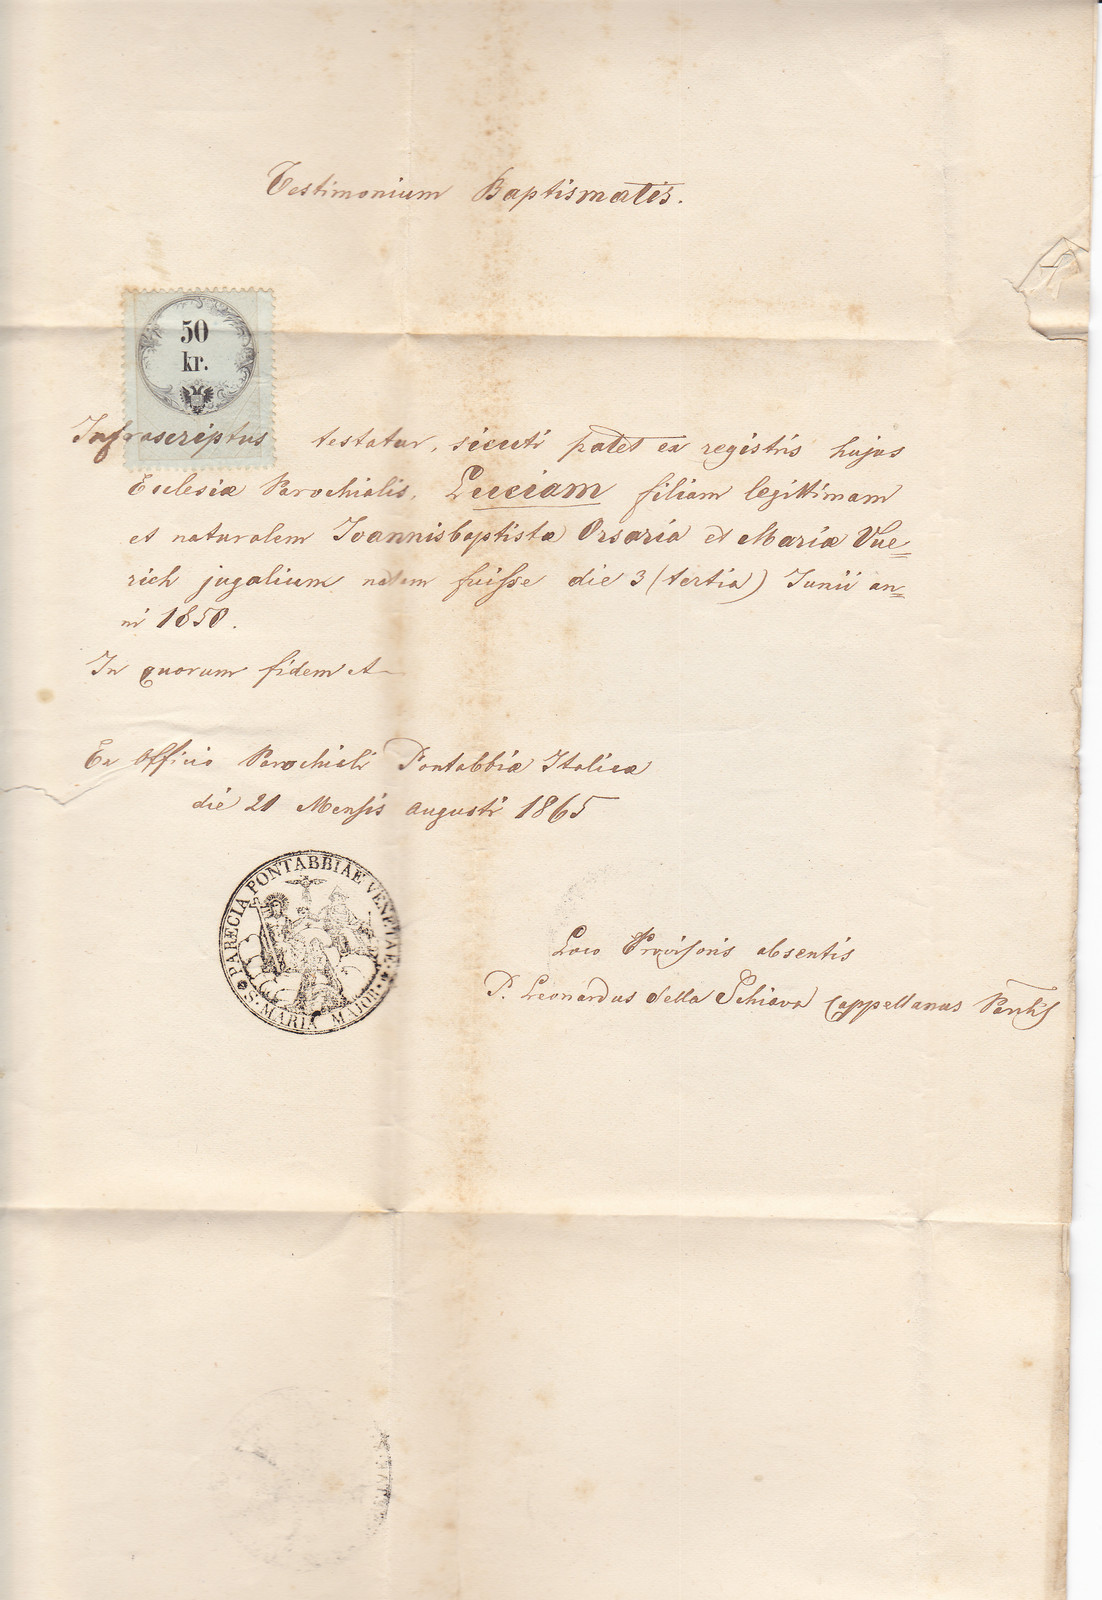 Testimonium Baptismatis.
50
kr.
Infrascriptus testatur, sicuti patet ex registris hujus
Eclesiæ Parochialis, Lucciam filiam legittimam
et naturalem Ioannisbaptistæ Orsaria et Mariæ Vue=
rich jugalium natam fuisse die 3 (tertia) Junii an=
ni 1850.
In quorum fidem et
Ex Officio Parochiali Pontabbiæ Italicæ
die 21 Mensis Augusti 1865
PARECIA PONTABBIAE VENETAE
S. MARIA MAJOR
Loco Provisoris absentis
P. Leonardus della Schiava Cappellanus